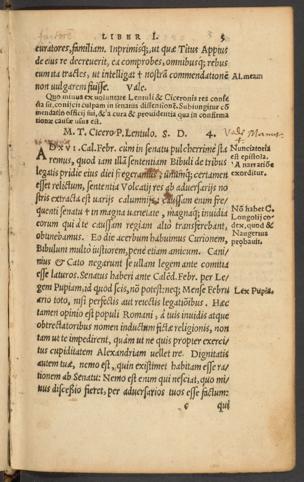 LIBER I. 5
curatores, familiam. Inprimisq;, ut quæ Titus Appius
de eius re decreuerit, ea comprobes, omnibusq; rebus
eum ita tractes, ut intelligat nostrā commendationē
non uulgarem fuisse. Vale.
Al. meam
Quo minus ex voluntate Lentuli & Ciceronis res confe
cta sit, coniicit culpam in senatus dissensionē. Subiungitur cō
mendatio officij sui, & a cura & prouidentia quia in confirma
tione causæ usus est.
M. T. Cicero P. Lentulo. S. D. 4.
AD XVI. Cal. Febr. cùm in senatu pulcherrimè sta
remus, quod iam illā sententiam Bibuli de tribus
legatis pridie eius diei fregeramus, unumq; certamen
esset relictum, sententia Volcatij res ab aduersarijs no
stris extracta est uarijs calumnijs: caussam enim fre
quenti senatu in magna uarietate, magnaq; inuidia
eorum qui à te caussam regiam aliò transferebant,
obtinebamus. Eo die acerbum habuimus Curionem,
Bibulum multò iustiorem, penè etiam amicum. Cani-
nius & Cato negarunt se ullam legem ante comitia
esse laturos. Senatus haberi ante Calēd. Febr. per Le-
gem Pupiam, id quod scis, nō potest: neq; Mense Febru
ario toto, nisi perfectis aut reiectis legatiōibus. Hæc
tamen opinio est populi Romani, à tuis inuidis atque
obtrectatoribus nomen inductum fictæ religionis, non
tam ut te impedirent, quàm ut ne quis propter exerci-
tus cupiditatem Alexandriam uellet ire. Dignitatis
autem tuæ, nemo est, quin existimet habitam esse ra-
tionem ab Senatu: Nemo est enim qui nesciat, quo mi-
nus discessio fieret, per aduersarios tuos esse factum:
qui
Nunciatoria
est epistola.
A narratiōe
exorditur.
Nō habet C.
Longolij co
dex, quod &
Naugerius
probauit.
Lex Pupia.